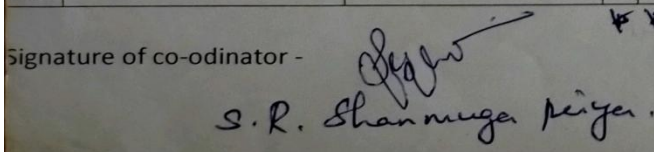 Signature of co-odinator -
S. R. Shanmuga priya.